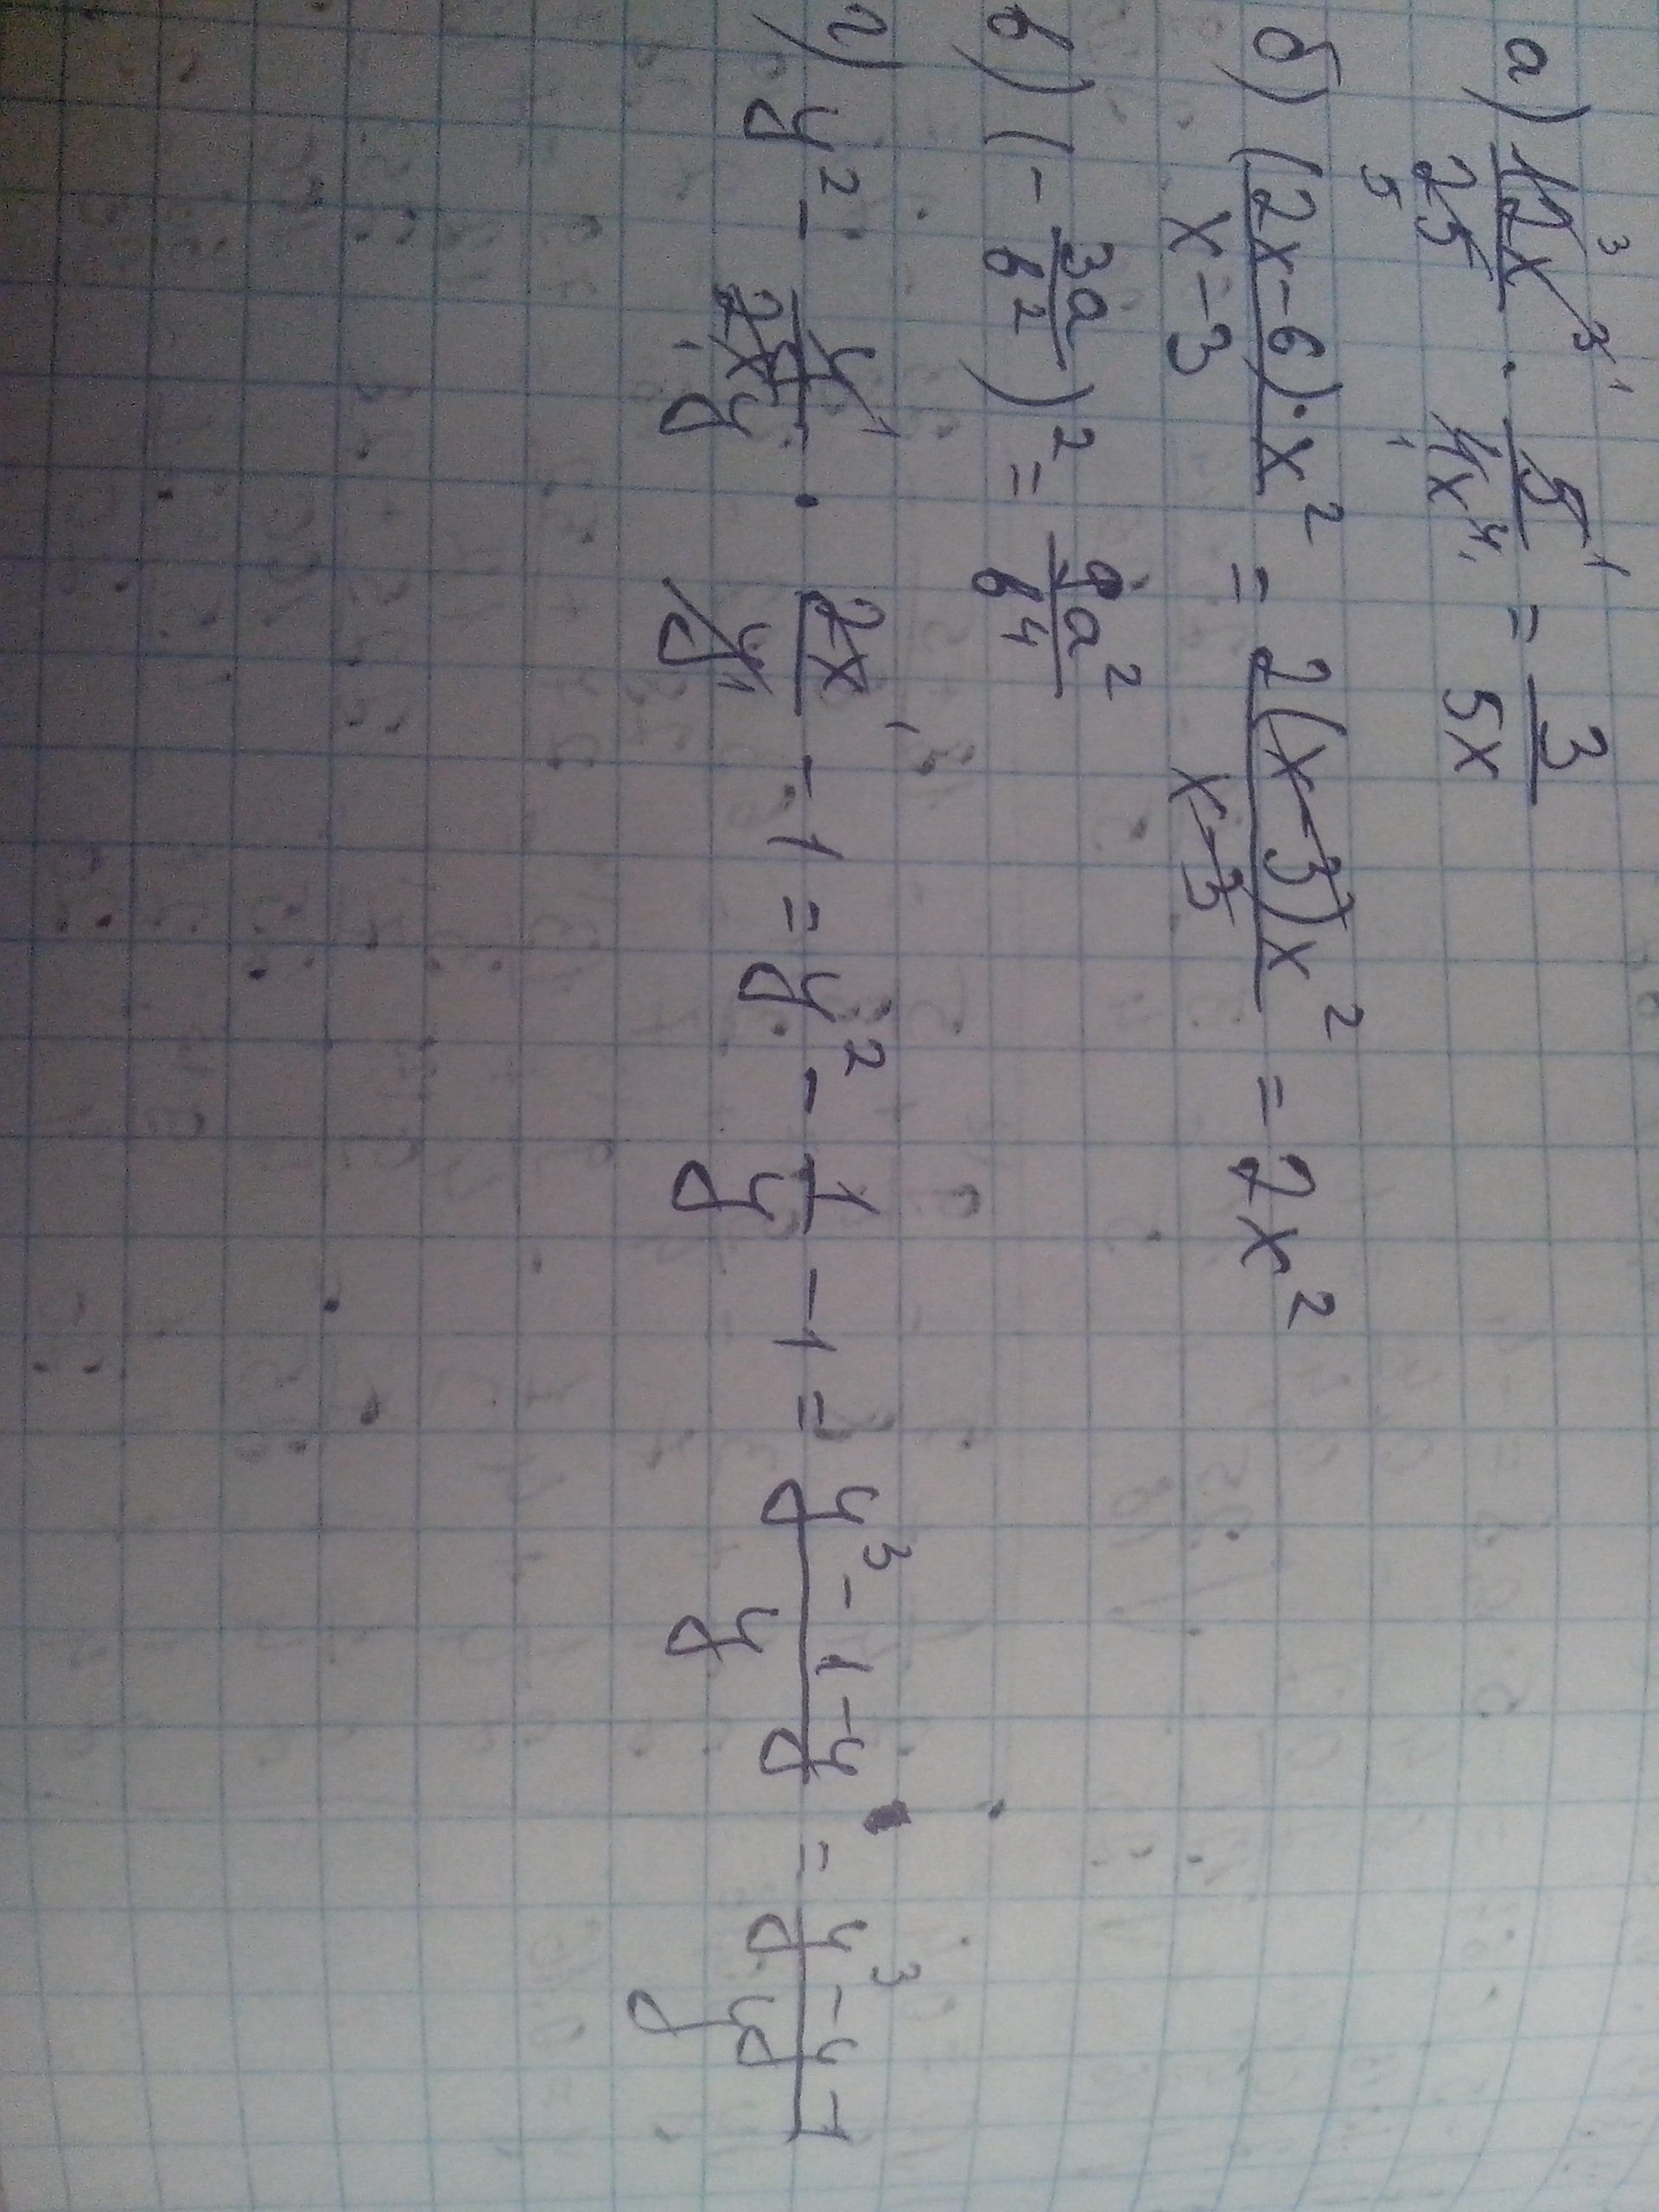 а) 12x³/25 · 5/4x⁴ = 3/5x
б) (2x-6)·x²/x-3 = 2(x-3)x²/x-3 = 2x²
в) (-3a/b²)² = 9a²/b⁴
г) y² - y/2xy · 2x/y - 1 = y² - 1/y - 1 = y³-1-y/y = y³-y-1/y